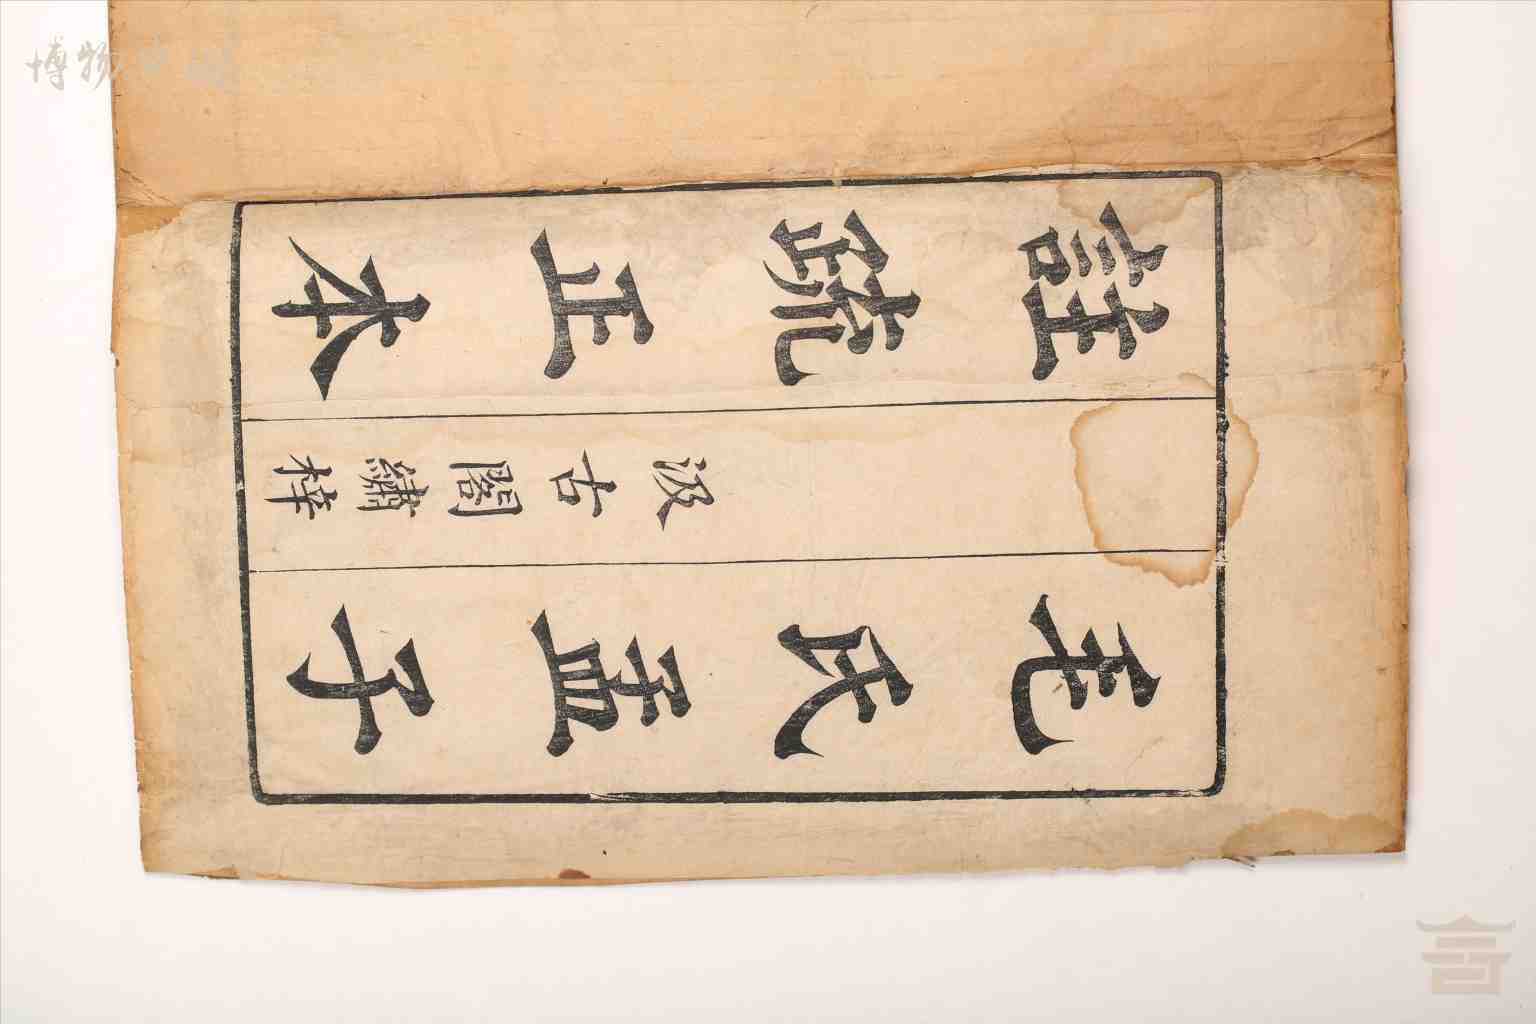 毛氏孟子
汲古閣繡梓
註疏正本
博物